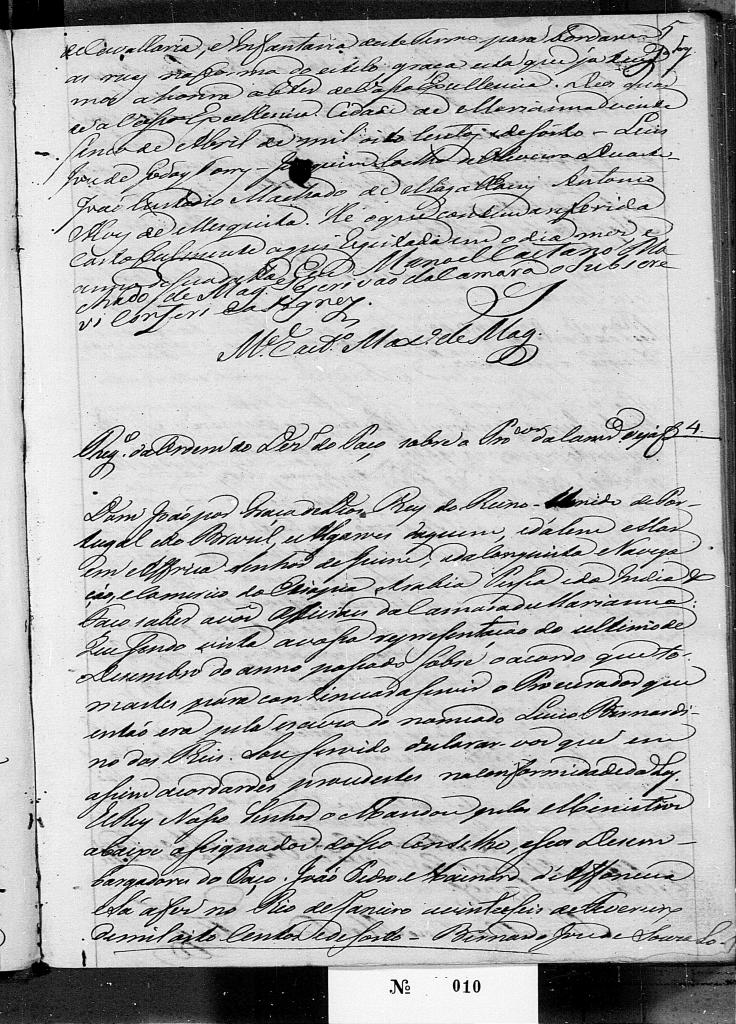 de Cavallaria, e Infantaria deste Termo para bordarem
as ruas na forma do estilo graça esta que já
mos a honra obter de Vossa Excellencia. Deos guar
de a Vossa Excellencia. Cidade de Marianna vinte
sinco de Abril de mil oito centos e desoito - Luis
Jozé de Godoy Torres - Joaquim Coelho de Oliveira Duarte
João Eustachio Machado de Magalhaens Antonio
Alvz de Mesquita. Hé o que continha a referida
Carta fielmente aqui registada em o dia mez e
anno declarado. Eu Manoel Caetano Ma
chado de Mag.es Escrivão da Camara o subscre
vi Conferi e asigney.
M.el Caet.o Max.o de Mag.
Reg.o da Ordem do Dez.o do Paço, sobre a Pro.am da Camr.a 4
Dom João por Graça de Deos Rey do Reino-Unido de Por-
tugal e do Brazil, e Algarves daquem, e dalem Mar
em Affrica Senhor de Guiné, e da Conquista e Navega
ção, e Comercio da Ethiopia Arabia Persia e da India &
Faço saber a vós Officiaes da Camara de Marianna:
Que sendo vista a vossa representação do ultimo de
Desembro do anno passado sobre o acordo que to-
mastes para continuar a servir o Procurador que
então era pela escuza do nomeado Luis Bernardi-
no dos Reis. Sou servido declarar-vos que em
assim acordardes procedestes na conformidade da Ley.
El Rey Nosso Senhor o Mandou pelos Ministros
abaixo assignados do seo Conselho, e seos Desem-
bargadores do Paço. João Pedro Maynard d'Affonceca
e Sá a fez no Rio de Janeiro a vinte seis de Fevereiro
de mil oito centos e desoito = Bernardo Jozé de Souza Lo-
Nº 010